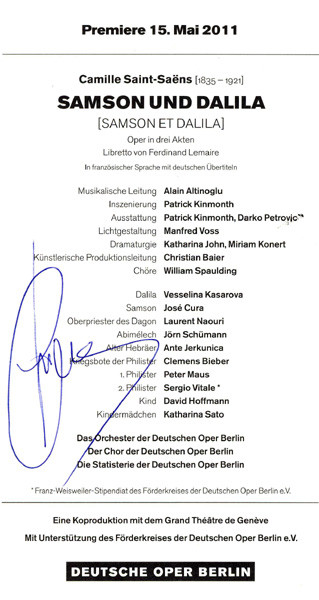 Premiere 15. Mai 2011
Camille Saint-Saëns [1835 – 1921]
SAMSON UND DALILA
[SAMSON ET DALILA]
Oper in drei Akten
Libretto von Ferdinand Lemaire
In französischer Sprache mit deutschen Übertiteln
Musikalische Leitung Alain Altinoglu
Inszenierung Patrick Kinmonth
Ausstattung Patrick Kinmonth, Darko Petrovic
Lichtgestaltung Manfred Voss
Dramaturgie Katharina John, Miriam Konert
Künstlerische Produktionsleitung Christian Baier
Chöre William Spaulding
Dalila Vesselina Kasarova
Samson José Cura
Oberpriester des Dagon Laurent Naouri
Abimélech Jörn Schümann
Alter Hebräer Ante Jerkunica
Kriegsbote der Philister Clemens Bieber
1. Philister Peter Maus
2. Philister Sergio Vitale *
Kind David Hoffmann
Kindermädchen Katharina Sato
Das Orchester der Deutschen Oper Berlin
Der Chor der Deutschen Oper Berlin
Die Statisterie der Deutschen Oper Berlin
* Franz-Weisweiler-Stipendiat des Förderkreises der Deutschen Oper Berlin e.V.
Eine Koproduktion mit dem Grand Théâtre de Genève
Mit Unterstützung des Förderkreises der Deutschen Oper Berlin e.V.
DEUTSCHE OPER BERLIN